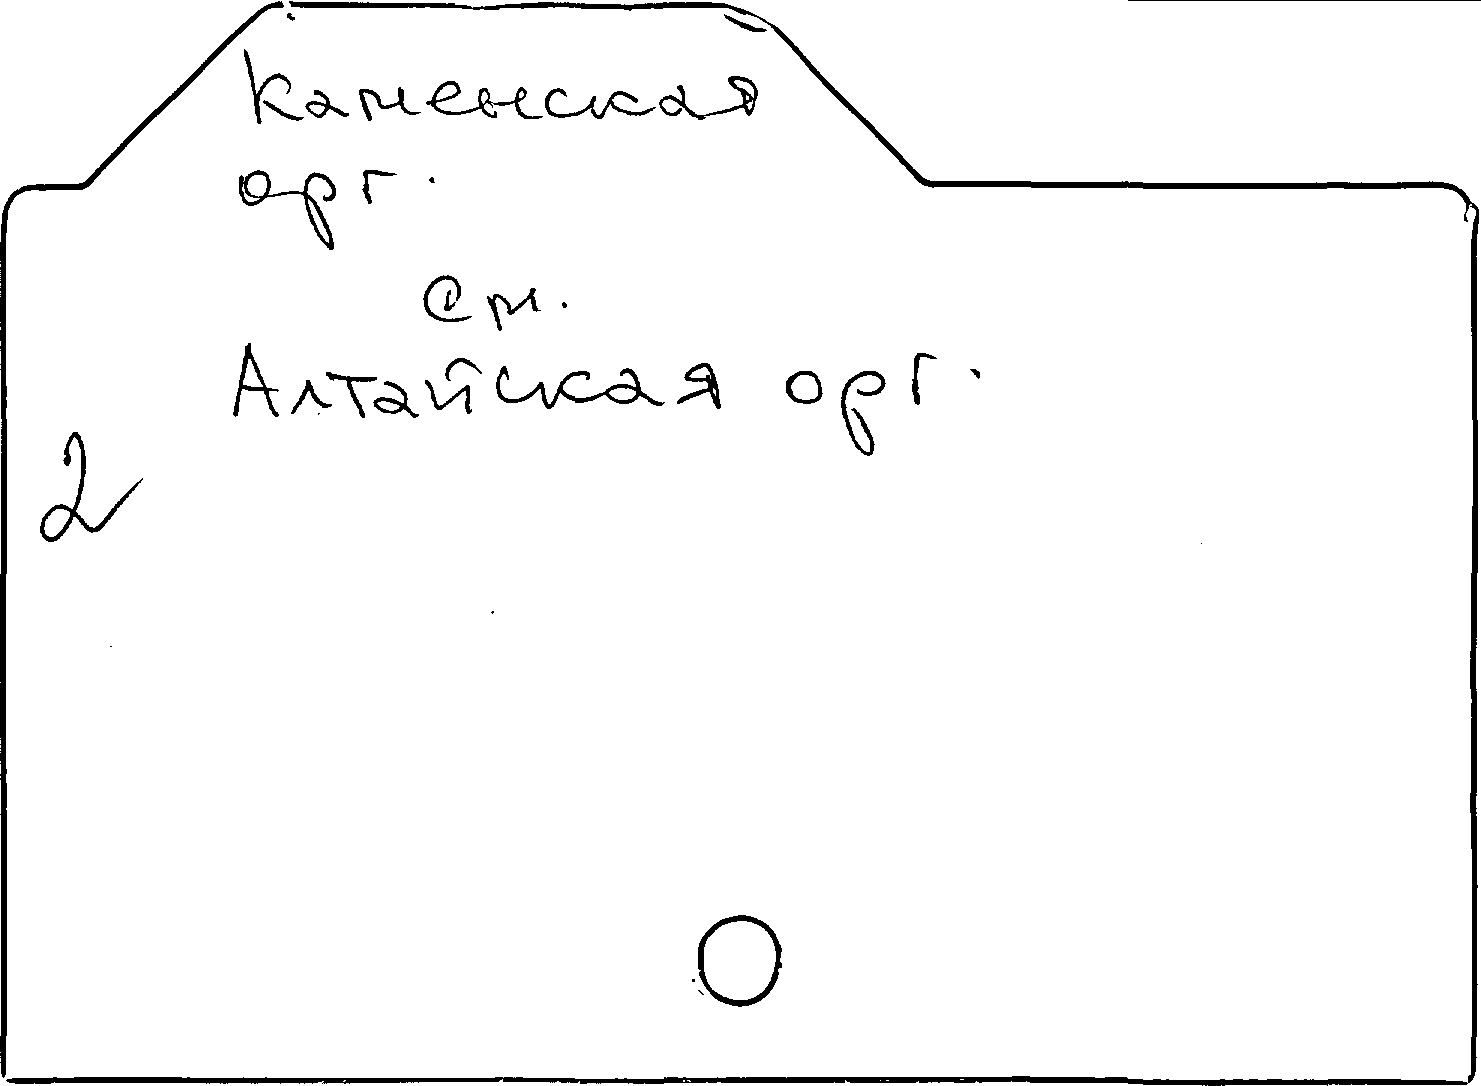 Каменская
орг.
см.
Алтайская орг.
2